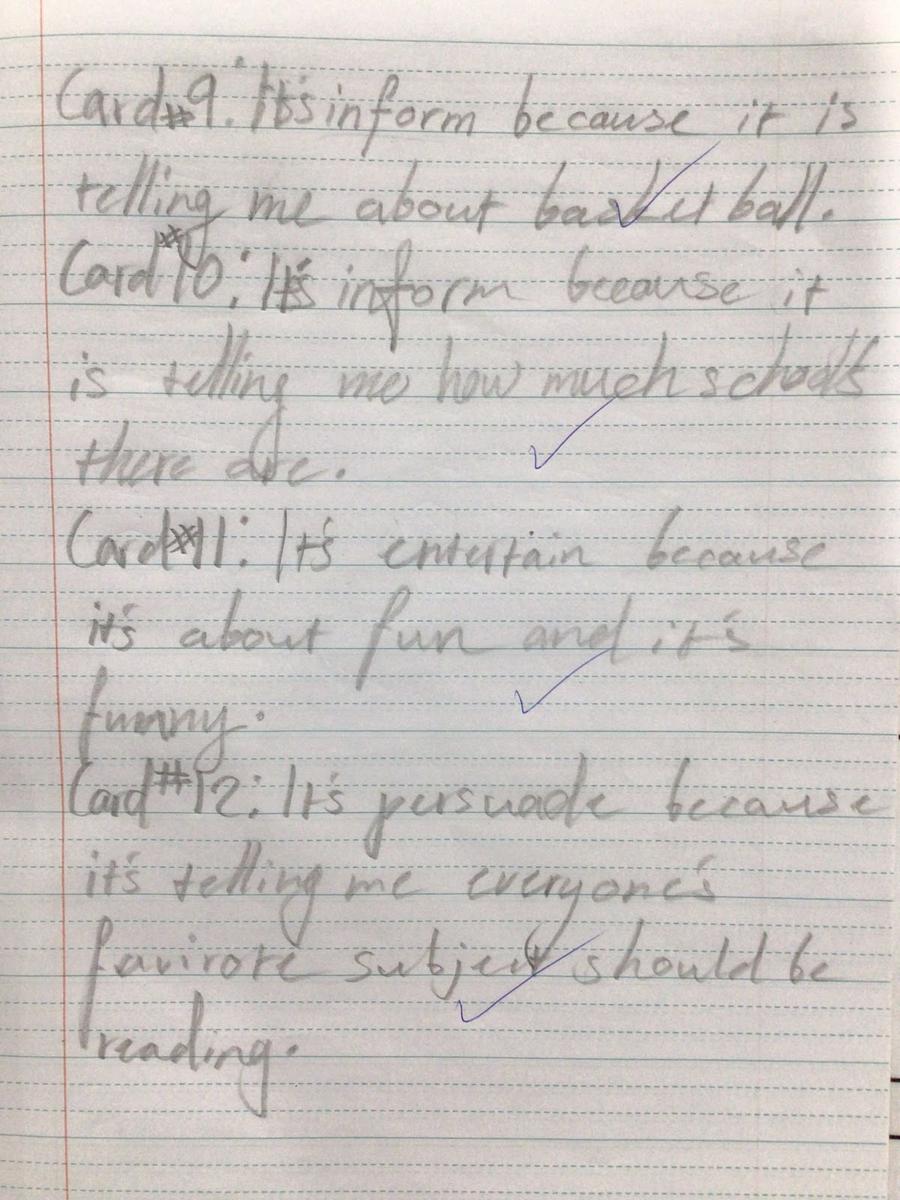 Card#9: It's inform because it is
telling me about basketball.
Card#10: It's inform because it
is telling me how much schools
there are.
Card#11: It's entertain because
it's about fun and it's
funny.
Card#12: It's persuade because
it's telling me everyone's
favirote subject should be
reading.